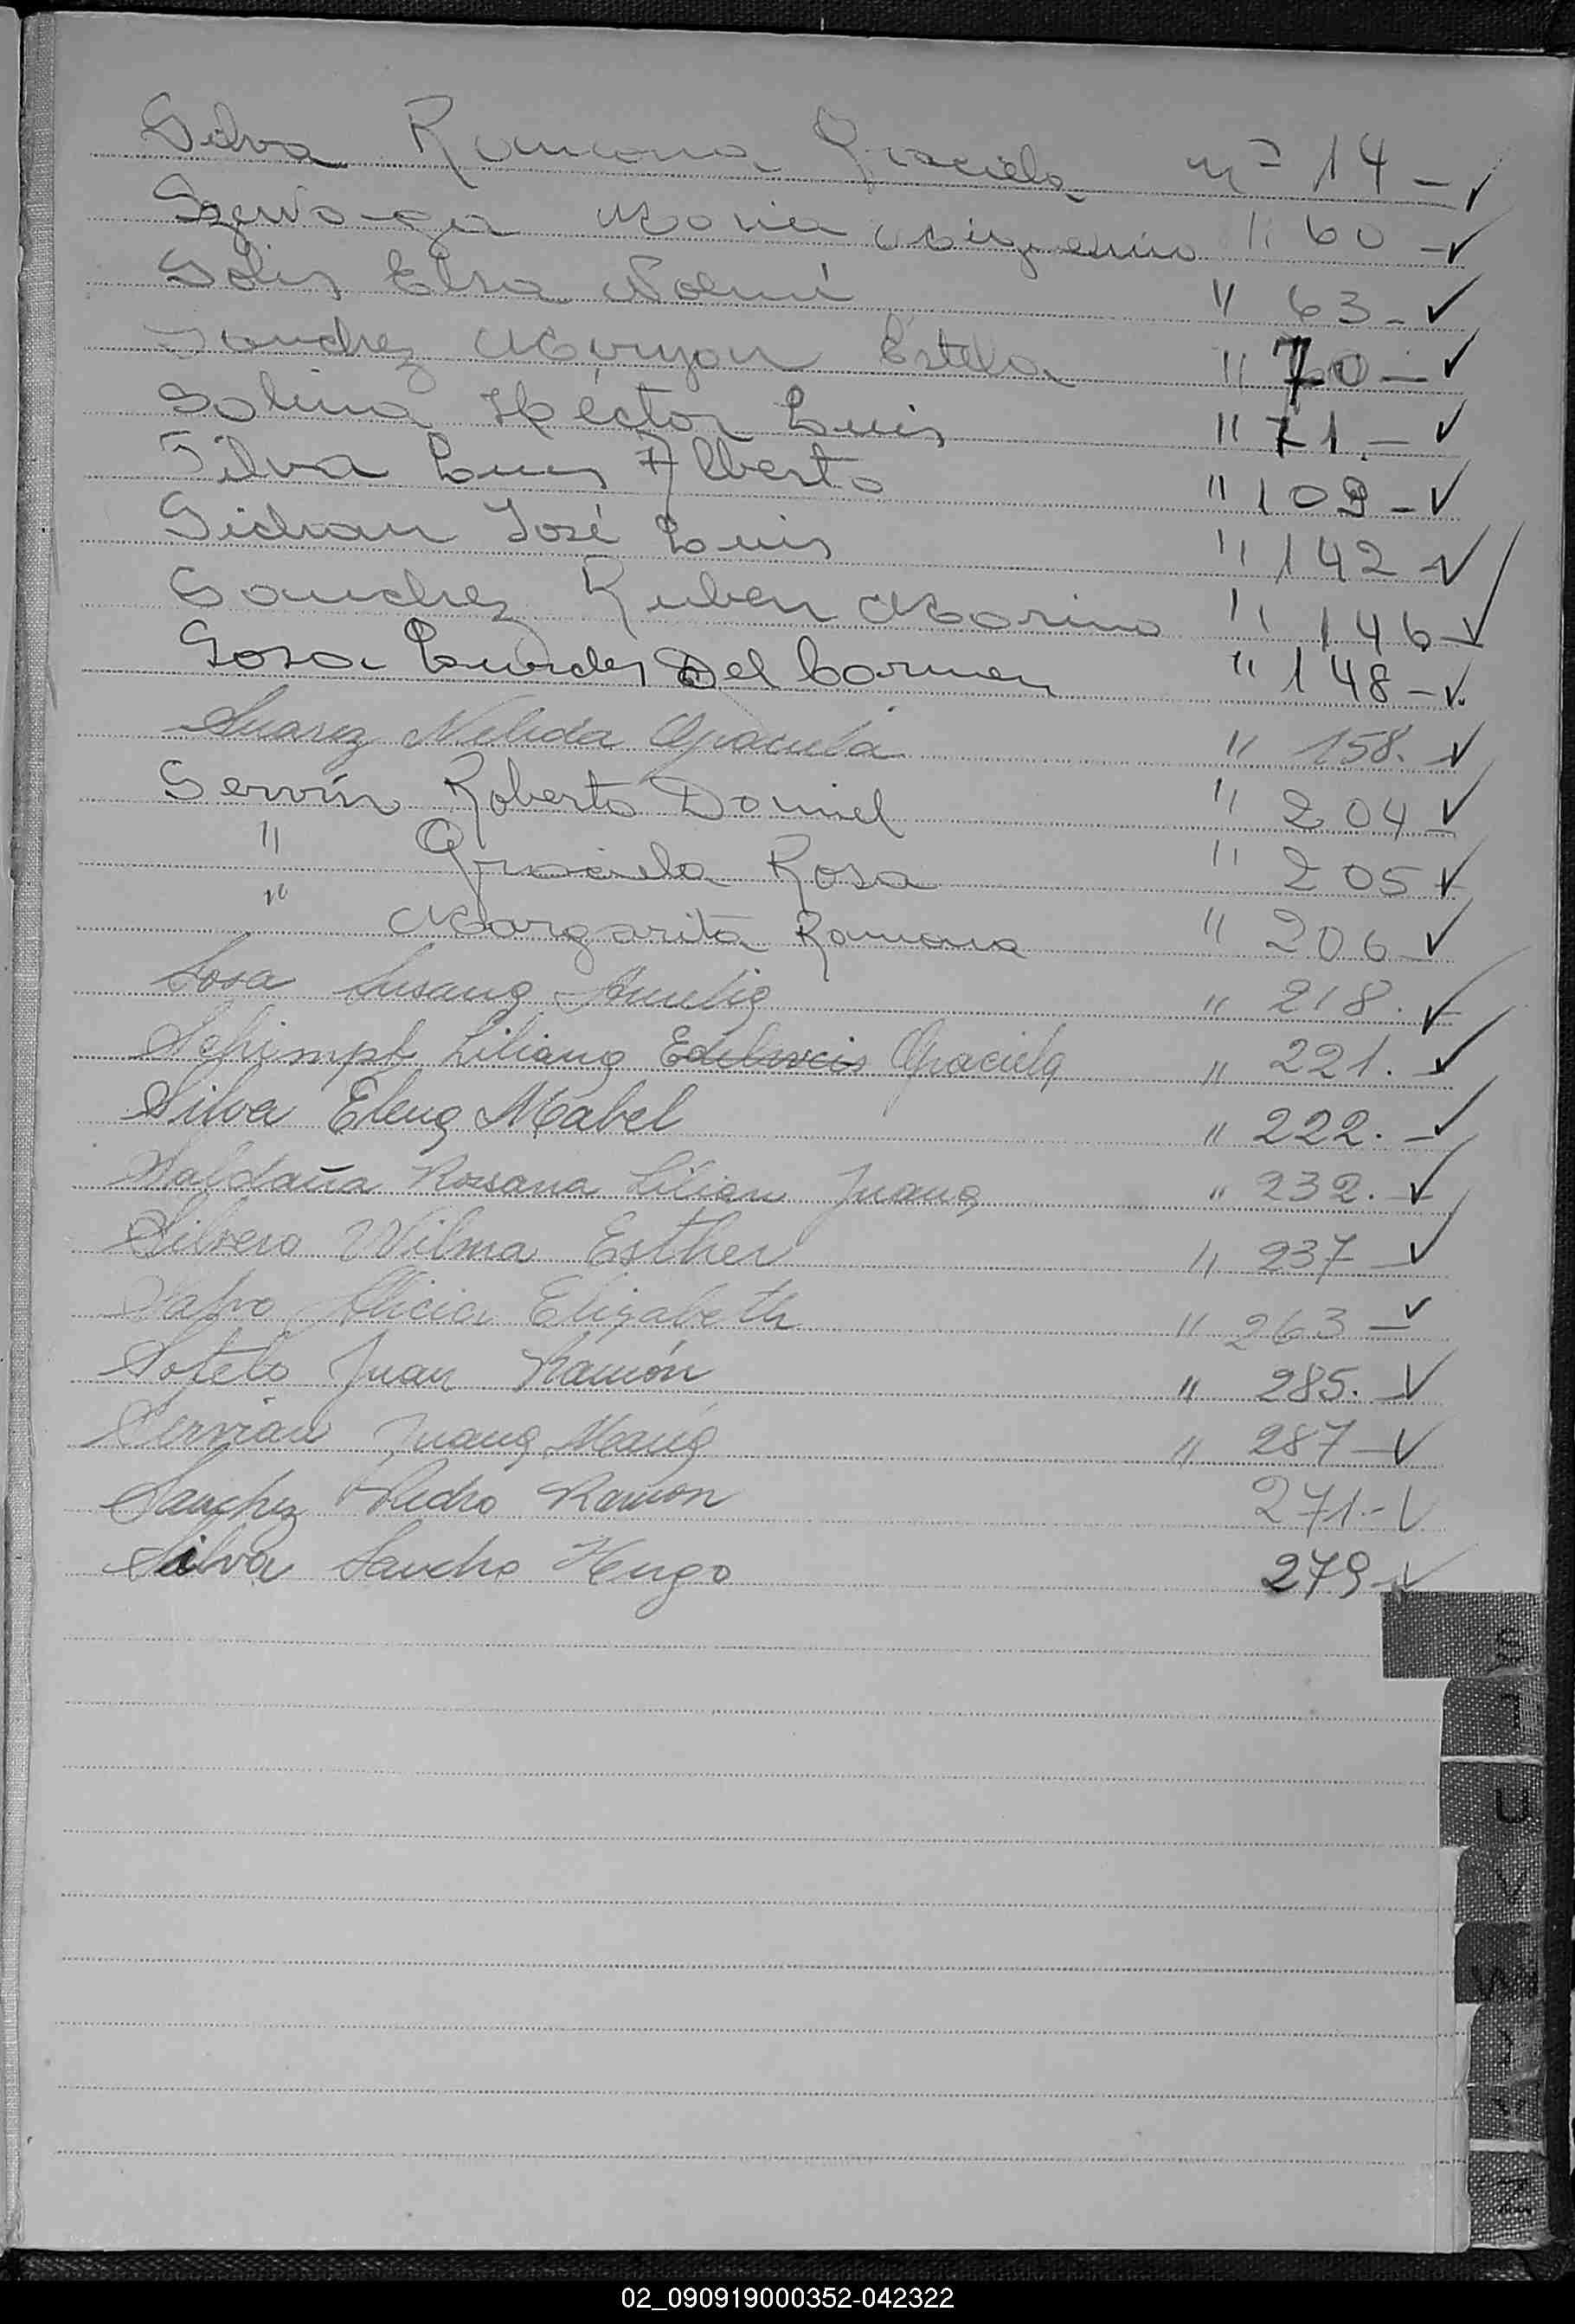 Silva Ramona Graciela nº 14 - ✓
Maria " 60 - ✓
Solis Elsa Noemí " 63 - ✓
Sanchez Miryan Estela " 70 - ✓
Solina Héctor Luis " 71. - ✓
Silva Luis Alberto " 109 - ✓
José Luis " 142 - ✓
Sanchez Ruben Marino " 146 - ✓
Sosa Lurdes Del Carmen " 148 - ✓
Suarez Nélida Graciela " 158. - ✓
Servín Roberto Daniel " 204 - ✓
" Graciela Rosa " 205 - ✓
" Margarita Ramona " 206 - ✓
Sosa Susana Amelia " 218. - ✓
Schimpf Liliana Edelweis Graciela " 221. - ✓
Silva Elena Mabel " 222. - ✓
Saldaña Rossana Lilian Juana " 232. - ✓
Silvero Wilma Esther " 237 - ✓
Alicia Elizabeth " 263 - ✓
Sotelo Juan Ramón " 285. - ✓
Servian Juana María " 287 - ✓
Sanchez Pedro Ramon 271. - ✓
Silva Sancho Hugo 279 - ✓
S
T
U
V
W
02_090919000352-042322